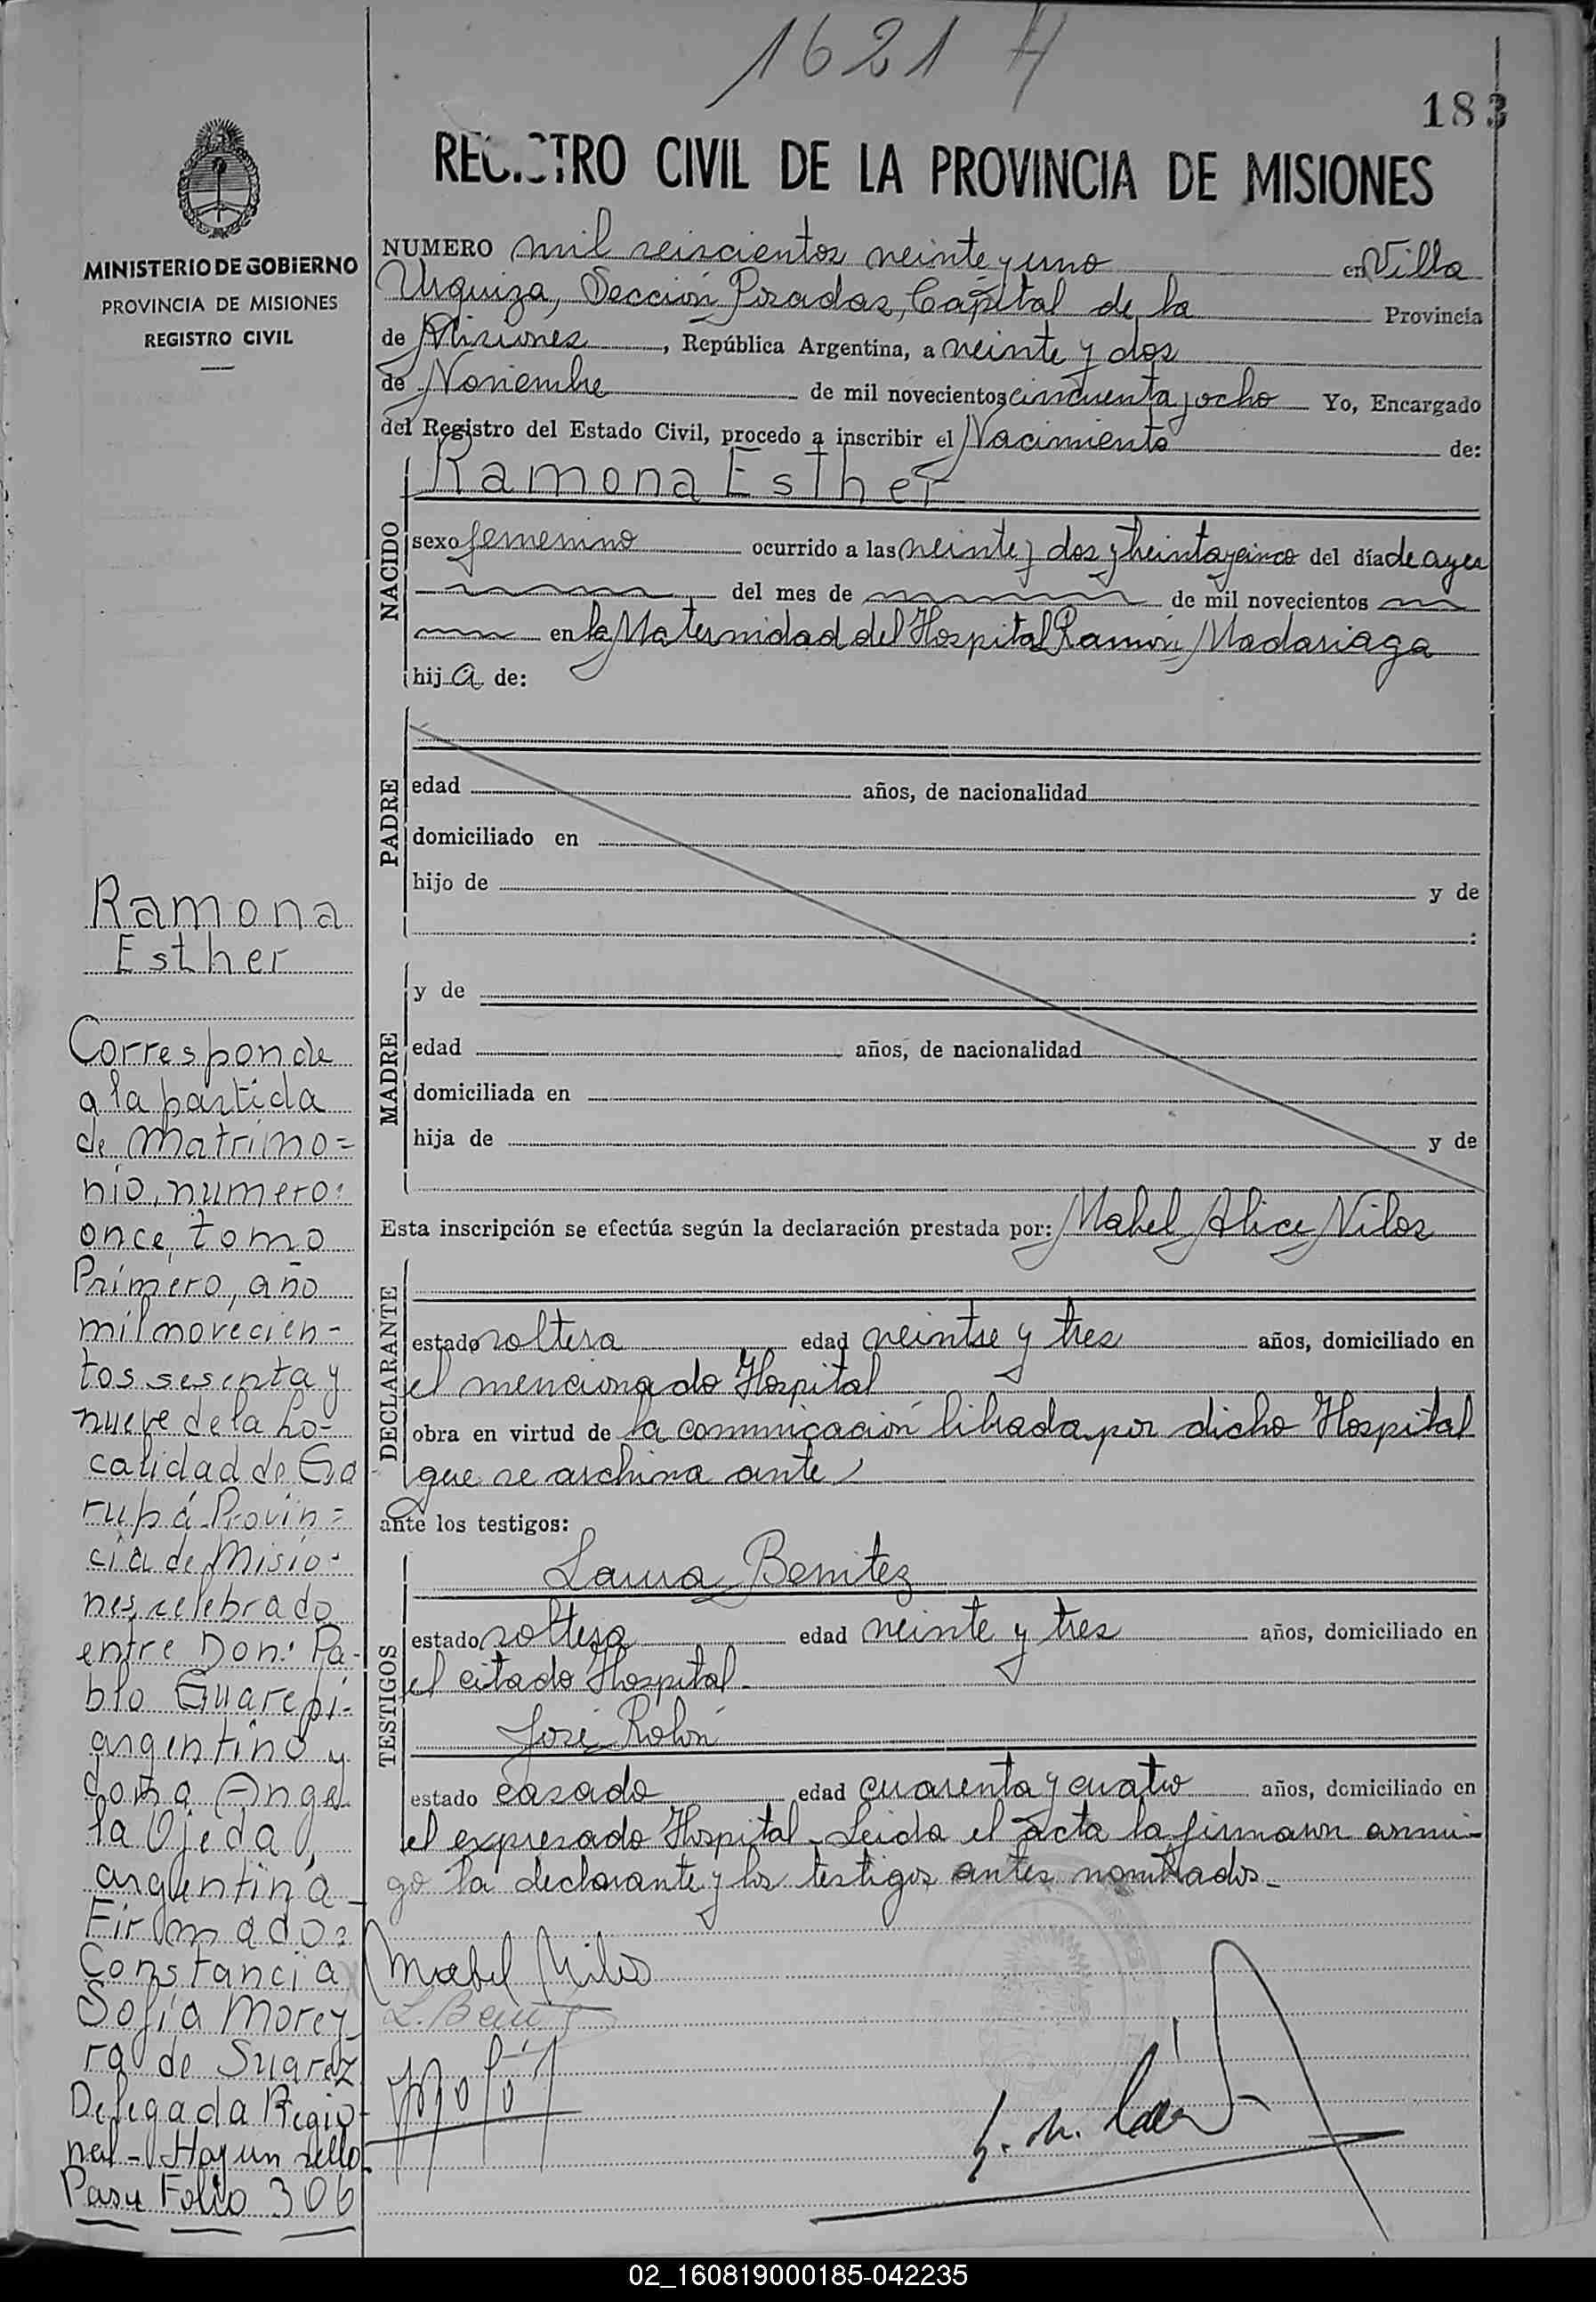 1621 H
183
REGISTRO CIVIL DE LA PROVINCIA DE MISIONES
MINISTERIO DE GOBIERNO
PROVINCIA DE MISIONES
REGISTRO CIVIL
NUMERO mil seiscientos veinte y uno en Villa
Urquiza, Sección Posadas, Capital de la Provincia
de Misiones, República Argentina, a veinte y dos
de Noviembre de mil novecientos cincuenta y ocho Yo, Encargado
del Registro del Estado Civil, procedo a inscribir el Nacimiento de:
Ramona Esther
NACIDO
sexo femenino ocurrido a las veinte y dos y treinta y cinco del día de ayer
del mes de de mil novecientos
en la Maternidad del Hospital Ramón Madariaga
hija de:
PADRE
edad años, de nacionalidad
domiciliado en
hijo de y de
:
MADRE
y de
edad años, de nacionalidad
domiciliada en
hija de y de
Esta inscripción se efectúa según la declaración prestada por: Mabel Alice Nilos
DECLARANTE
estado soltera edad veintre y tres años, domiciliado en
el mencionado Hospital
obra en virtud de la comunicación librada por dicho Hospital
que se archiva ante
ante los testigos:
TESTIGOS
Laura Benitez
estado soltera edad veinte y tres años, domiciliado en
el citado Hospital
José Rolón
estado casado edad cuarenta y cuatro años, domiciliado en
el expresado Hospital - Leida el acta la firmaron conmi-
go la declarante y los testigos antes nombrados -
Mabel Nilos
L. Benitez
Ramona
Esther
Corresponde
a la partida
de matrimo=
nio, numero:
once, tomo
Primero, año
mil novecien-
tos sesenta y
nueve de la Lo-
calidad de Ga
rupá Provin=
cia de Misio-
nes, celebrado
entre Don: Pa-
blo Guarepi-
argentino y
doña Ange
la Ojeda,
argentina -
Firmado:
Constancia
Sofía Morey
ra de Suarez
Delegada Regio
nal - Hay un sello
Pasa Folio 306
02_160819000185-042235